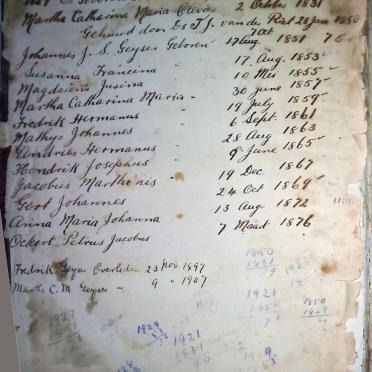 Martha Catharina Maria Olevier 2 October 1831
Gehuwd door Ds T. J. van der Riet 28 Jan 1850
7 Oct
Johannes J. S. Geyser Geboren 17 Aug. 1851
Susanna Francina " 17 Aug. 1853
Magdalena Jusina " 10 Mei 1855
Martha Catharina Maria - 30 June 1857
Fredrik Hermanus " 19 July 1859
Mathys Johannes 6 Sept. 1861
Andries Hermanus " 28 Aug 1863
Hendrik Josephus 9 June 1865
Jacobus Marthenis 19 Dec 1867
Gert Johannes 24 Oct 1869
Anna Maria Johanna 13 Aug. 1872
Ockert Petrus Jacobus 7 Maart 1876
Fredrik Geyser Overleden 23 Nov 1897
Martha C. M Geyser " 9 " 1907
1850
1921
1850
1850
1829
1927
1851
1929
1921
1831
90
1852